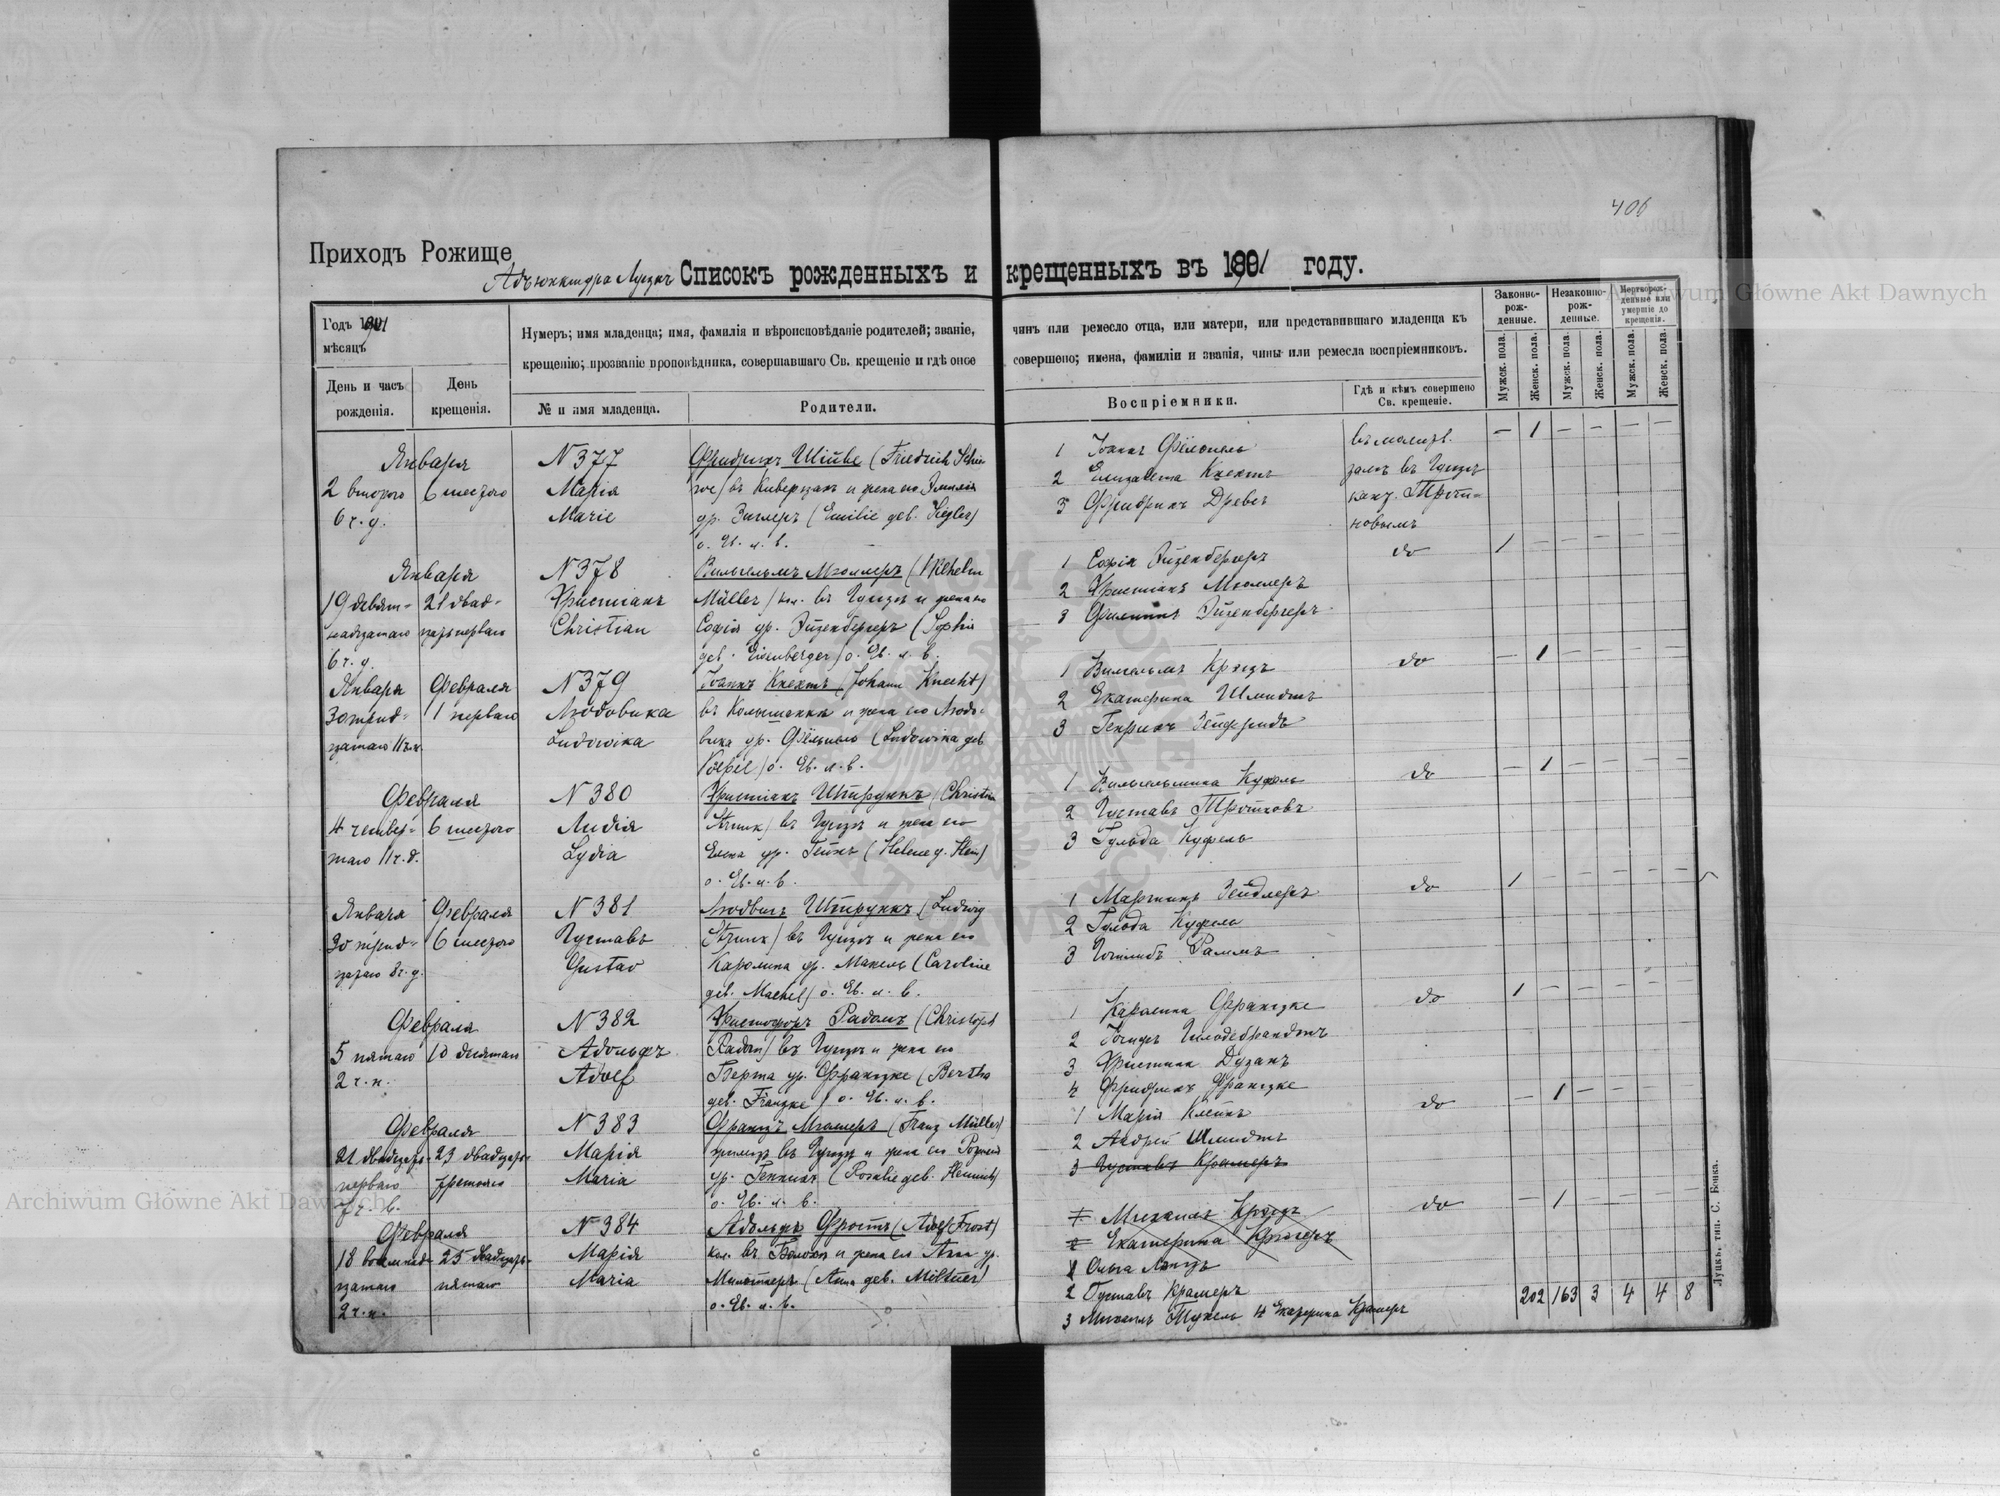 406
Приходъ Рожище
Адъюнктура Луцкъ Списокъ рожденныхъ и крещенныхъ въ 1891 году.
Годъ 1891
мѣсяцъ
Нумеръ; имя младенца; имя, фамилія и вѣроисповѣданіе родителей; званіе, чинъ или ремесло отца, или матери, или представившаго младенца къ
крещенію; прозваніе проповѣдника, совершавшаго Св. крещеніе и гдѣ оное совершено; имена, фамиліи и званія, чины или ремесла воспріемниковъ.
Законно-
рож-
денные.
Незаконно-
рож-
денные.
Мертворож-
денные или
умершіе до
крещенія.
Мужск. пола.
Женск. пола.
Мужск. пола.
Женск. пола.
Мужск. пола
Женск. пола.
День и часъ
рожденія.
День
крещенія.
№ и имя младенца.
Родители.
Воспріемники.
Гдѣ и кѣмъ совершено
Св. крещеніе.
Января
2 второго 6 шестого
6 ч. у.
N 377
Марія
Marie
Фридрихъ Шіиве (Friedrich Schie
we) въ Киверцахъ и жена его Эмилія
ур. Зиглеръ (Emilie geb. Siegler)
о. Ев. л. в.
1 Іоаннъ Фёльпель
2 Елизавета Кнехтъ
3 Фридрихъ Древсъ
въ молит.
залѣ въ
кант.
новымъ
— 1 — — — —
Января
19 девят- 21 двад-
надцатаго цать перваго
6 ч. у.
N 378
Христіанъ
Christian
Вильгельмъ Мюллеръ (Wilhelm
Müller) кол. въ и жена его
Софія ур. Эйзенбергеръ (Sophia
geb. Eisenberger) о. Ев. л. в.
1 Софія Эйзенбергеръ
2 Христіанъ Мюллеръ
3 Эйзенбергеръ
do
1 — — — — —
Января Февраля
30 трид- 1 перваго
цатаго 11 ч.
N 379
Людовика
Ludowika
Іоаннъ Кнехтъ (Johann Knecht)
въ и жена его Людо-
вика ур. Фёльпель (Ludowika geb.
Voelpel) о. Ев. л. в.
1 Вильгельмъ
2 Екатерина Шмидтъ
3 Генрихъ Зейфридъ
do
— 1 — — — —
Февраля
4 четвер- 6 шестого
таго 11 ч. д.
N 380
Лидія
Lydia
Христіанъ Штрункъ (Christian
Strunk) въ и жена его
Елена ур. Гейнъ (Helene g. Hein)
о. Ев. л. в.
1 Вильгельмина Куфель
2 Густавъ
3 Гульда Куфель
do
— 1 — — — —
Января Февраля
30 трид- 6 шестого
цатаго 8 ч. у.
N 381
Густавъ
Gustav
Людвигъ Штрункъ (Ludwig
Strunk) въ и жена его
Каролина ур. Махель (Caroline
geb. Machel) о. Ев. л. в.
1 Мартинъ Зейдлеръ
2 Гульда Куфель
3 Готлибъ Раммъ
do
1 — — — — —
Февраля
5 пятаго 10
2 ч. н.
N 382
Адольфъ
Adolf
Христофоръ Радомъ (Christoph
Radom) въ и жена его
Берта ур. Францке (Bertha
geb. Franzke) о. Ев. л. в.
1 Каролина Францке
2
3 Христина
4 Фридрихъ Францке
do
1 — — — — —
Февраля
21 двадцать 23 двадцать
перваго третьяго
7 ч. в.
N 383
Марія
Maria
Францъ Мюллеръ (Franz Müller)
въ и жена его
ур. Генрихъ (Rosalie geb. Heinrich)
о. Ев. л. в.
1 Марія Клейнъ
2 Андрей Шмидтъ
3 Густавъ Крамеръ
do
— 1 —
Февраля
18 восемнад- 25 двадцать
цатаго пятаго
2 ч. н.
N 384
Марія
Maria
Адольфъ Фростъ (Adolf Frost)
кол. въ и жена его Анна ур.
Мильтнеръ (Anna geb. Miltner)
о. Ев. л. в.
1 Михаилъ
2 Екатерина
1 Ольга
2 Густавъ Крамеръ
3 Михаилъ 4 Екатерина Крамеръ
do
— 1 — — — —
202 163 3 4 4 8
Луцкъ, тип. С. Бонка.
Archiwum Główne Akt Dawnych
Archiwum Główne Akt Dawnych